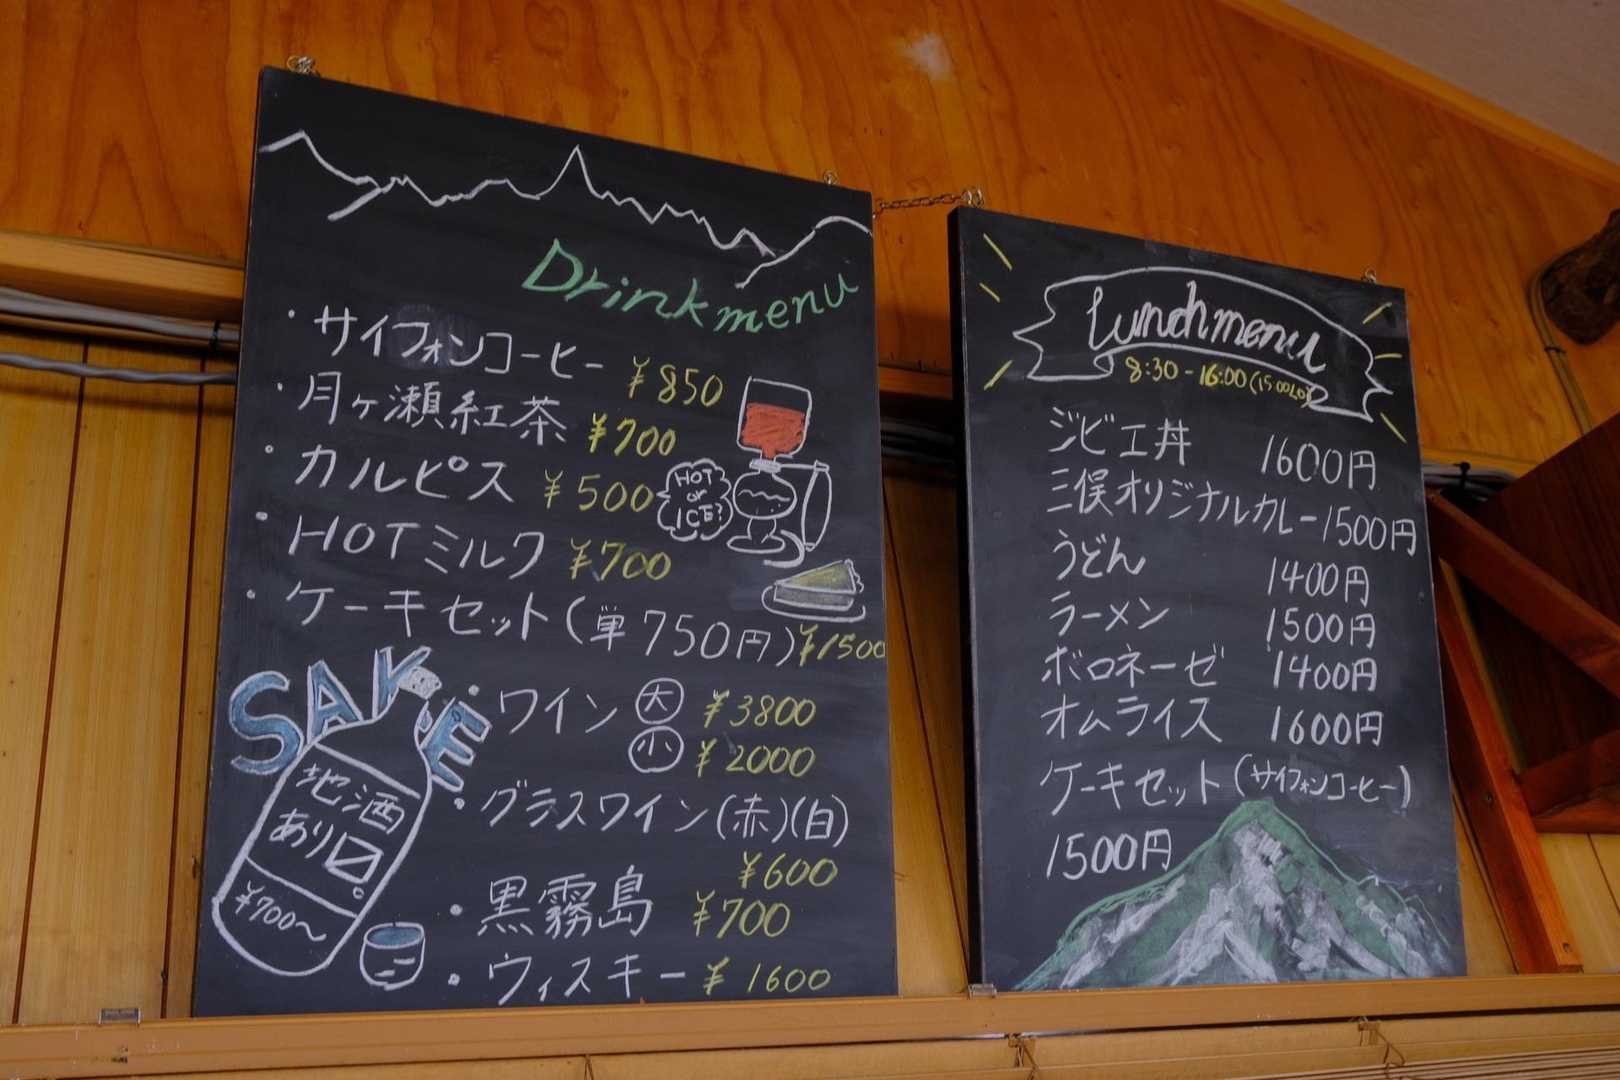 Drinkmenu
・サイフォンコーヒー ¥850
・月ヶ瀬紅茶 ¥700
・カルピス ¥500
HOT
or
ICE?
・HOTミルク ¥700
・ケーキセット(単750円)¥1500
SAKE
地酒
あり〼
¥700〜
・ワイン 大 ¥3800
小 ¥2000
・グラスワイン(赤)(白)
¥600
・黒霧島 ¥700
・ウィスキー ¥1600
Lunchmenu
8:30-16:00(15:00LO)
ジビエ丼 1600円
三俣オリジナルカレー1500円
うどん 1400円
ラーメン 1500円
ボロネーゼ 1400円
オムライス 1600円
ケーキセット(サイフォンコーヒー)
1500円